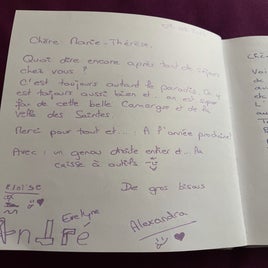 Chère Marie-Thérèse.
Quoi dire encore après tout de séjours
chez vous ?
C'est toujours autant le paradis. On y
est toujours aussi bien et on est super
fan de cette belle Camargue et de la
ville des Saintes.
Merci pour tout et... : A l'année prochaine !
Avec : un genou droite entier et... la
caisse à outils
De gros bisous
eloïse
Evelyne
André
Alexandra
Chè